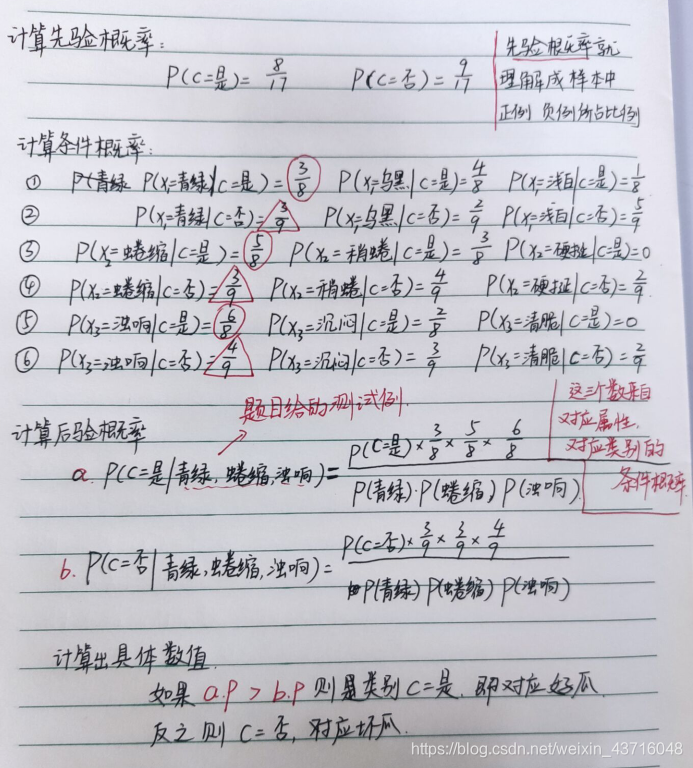 计算先验概率:
P(C=是)= 8/17 P(C=否)= 9/17
先验概率就
理解成样本中
正例 负例所占比例
计算条件概率:
① P(青绿 P(X₁=青绿|C=是)= 3/8 P(X₁=乌黑|C=是)= 4/8 P(X₁=浅白|C=是)= 1/8
② P(X₁=青绿|C=否)= 3/9 P(X₁=乌黑|C=否)= 2/9 P(X₁=浅白|C=否)= 5/9
③ P(X₂=蜷缩|C=是)= 5/8 P(X₂=稍蜷|C=是)= 3/8 P(X₂=硬挺|C=是)=0
④ P(X₂=蜷缩|C=否)= 3/9 P(X₂=稍蜷|C=否)= 4/9 P(X₂=硬挺|C=否)= 2/9
⑤ P(X₃=浊响|C=是)= 6/8 P(X₃=沉闷|C=是)= 2/8 P(X₃=清脆|C=是)=0
⑥ P(X₃=浊响|C=否)= 4/9 P(X₃=沉闷|C=否)= 3/9 P(X₃=清脆|C=否)= 2/9
题目给的测试例.
这三个数来自
对应属性.
对应类别的
条件概率.
计算后验概率
a. P(C=是|青绿,蜷缩,浊响)= P(C=是)× 3/8 × 5/8 × 6/8
P(青绿)·P(蜷缩)P(浊响)
b. P(C=否|青绿,蜷缩,浊响)= P(C=否)× 3/9 × 3/9 × 4/9
P(青绿)P(蜷缩)P(浊响)
计算出具体数值
如果 a.P > b.P 则是类别 C=是, 即对应好瓜
反之则 C=否, 对应坏瓜.
https://blog.csdn.net/weixin_43716048